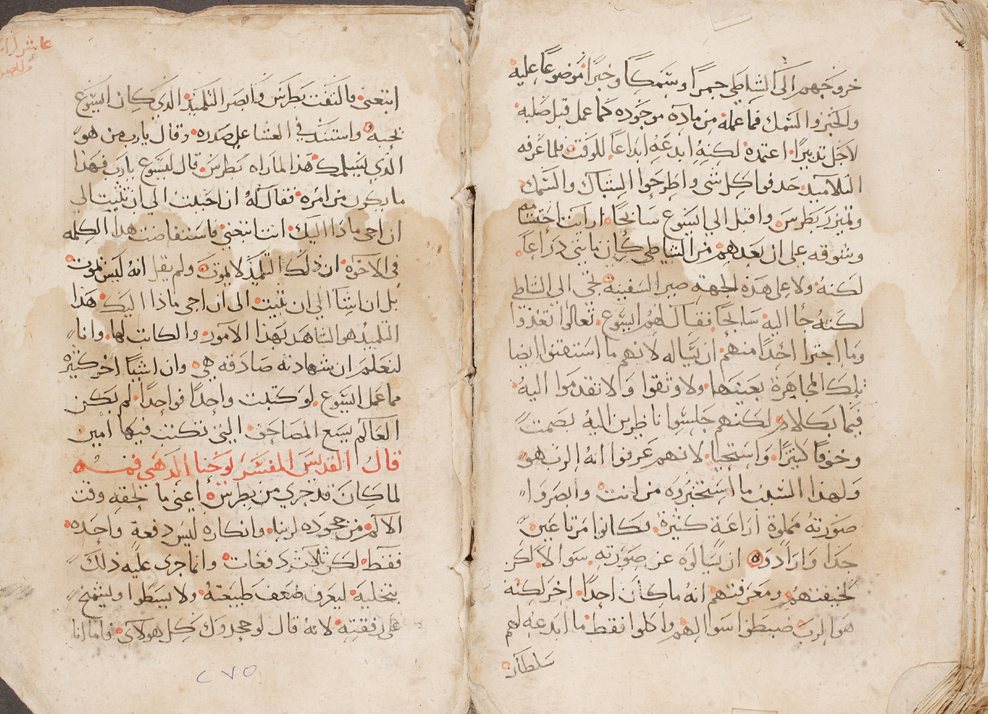 خروجهم الى الشاطي جمرا وسمكا وخبزا موضوعا عليه
والخبز والسمك فما عمله من ماده موجوده كما عمل قبل صلبه
لاجل تدبيرا اعتمده لكنه ابدعه ابداعا للوقت فلما عرفه
التلاميد حدفوا كل شي واطرحوا الشباك والسمك
وتميز بطرس واقبل الي ايسوع سابحا ارايت احتشامه
وشوقه على ان بعدهم من الشاطي كان مايتي دراعا
لكنه ولا على هده الجهه صبر السفينه تجي الى الشاطي
لكنه جا اليه سابحا فقال لهم ايسوع تعالوا تغذوا
وما اجترا احدا منهم ان يساله لانهم ما استفتوا ايضا
تلك المجاهرة بعينها ولا وثقوا ولا تقدموا اليه
فيما بكلام لكنهم جلسوا ناظرين اليه بصمت
وخوفا كثيرا واستحيا لانهم عرفوا انه الرب هو
ولهدا السبب ما استخبروه من انت وابصروا
صورته مملوة اراعة كثيرة فكانوا مرتاعين
جدا وارادوا ان يسالوه عن صورته سوالا لكن
لخيفتهم ومعرفتهم انه ما كان احدا اخر لكنه
هو الرب ضبطوا سوالهم واكلوا فقط ما ابدعه لهم
سلطان
عاشر
اتبعني فالتفت بطرس وابصر التلميذ الذي كان ايسوع
يحبه واستند في العشا على صدره وقال يا رب من هو
الذي يسلمك هذا لما راه بطرس قال ليسوع يا رب فهذا
ما يكون من امره فقال له ان احببت الي ان تثبت الي
ان اجي ماذا اليك انت اتبعني فاستفاضت هدا الكلمه
في الاخوه ان ذلك التلميذ لا يموت ولم يقل انه ليس يموت
بل ان اشا الي ان يثبت الى ان اجي ماذا اليك هذا
التلميذ هو الشاهد بهذا الامور والكاتب لها وانا
لنعلم ان شهادته صادقه هي وان اشيا اخر كثيره
مما عمل ايسوع لو كتبت واحدا فواحدا لم يكن
العالم يسع المصاحف التي تكتب فيها امين
قال القديس المفسر يوحنا الدهبي فمه
لما كان قد جري من بطرس اعني ما لحقه وقت
الالم من جحوده لربنا وانكاره ليس دفعة واحده
فقط لكن ثلاث دفعات وانما جرى عليه ذلك
بتخليه ليعرف ضعف طبيعته ولا يسطوا ويشمخ
على رفقته لانه قال لو جحدوك كل هولاي فاما انا
٢٧٥